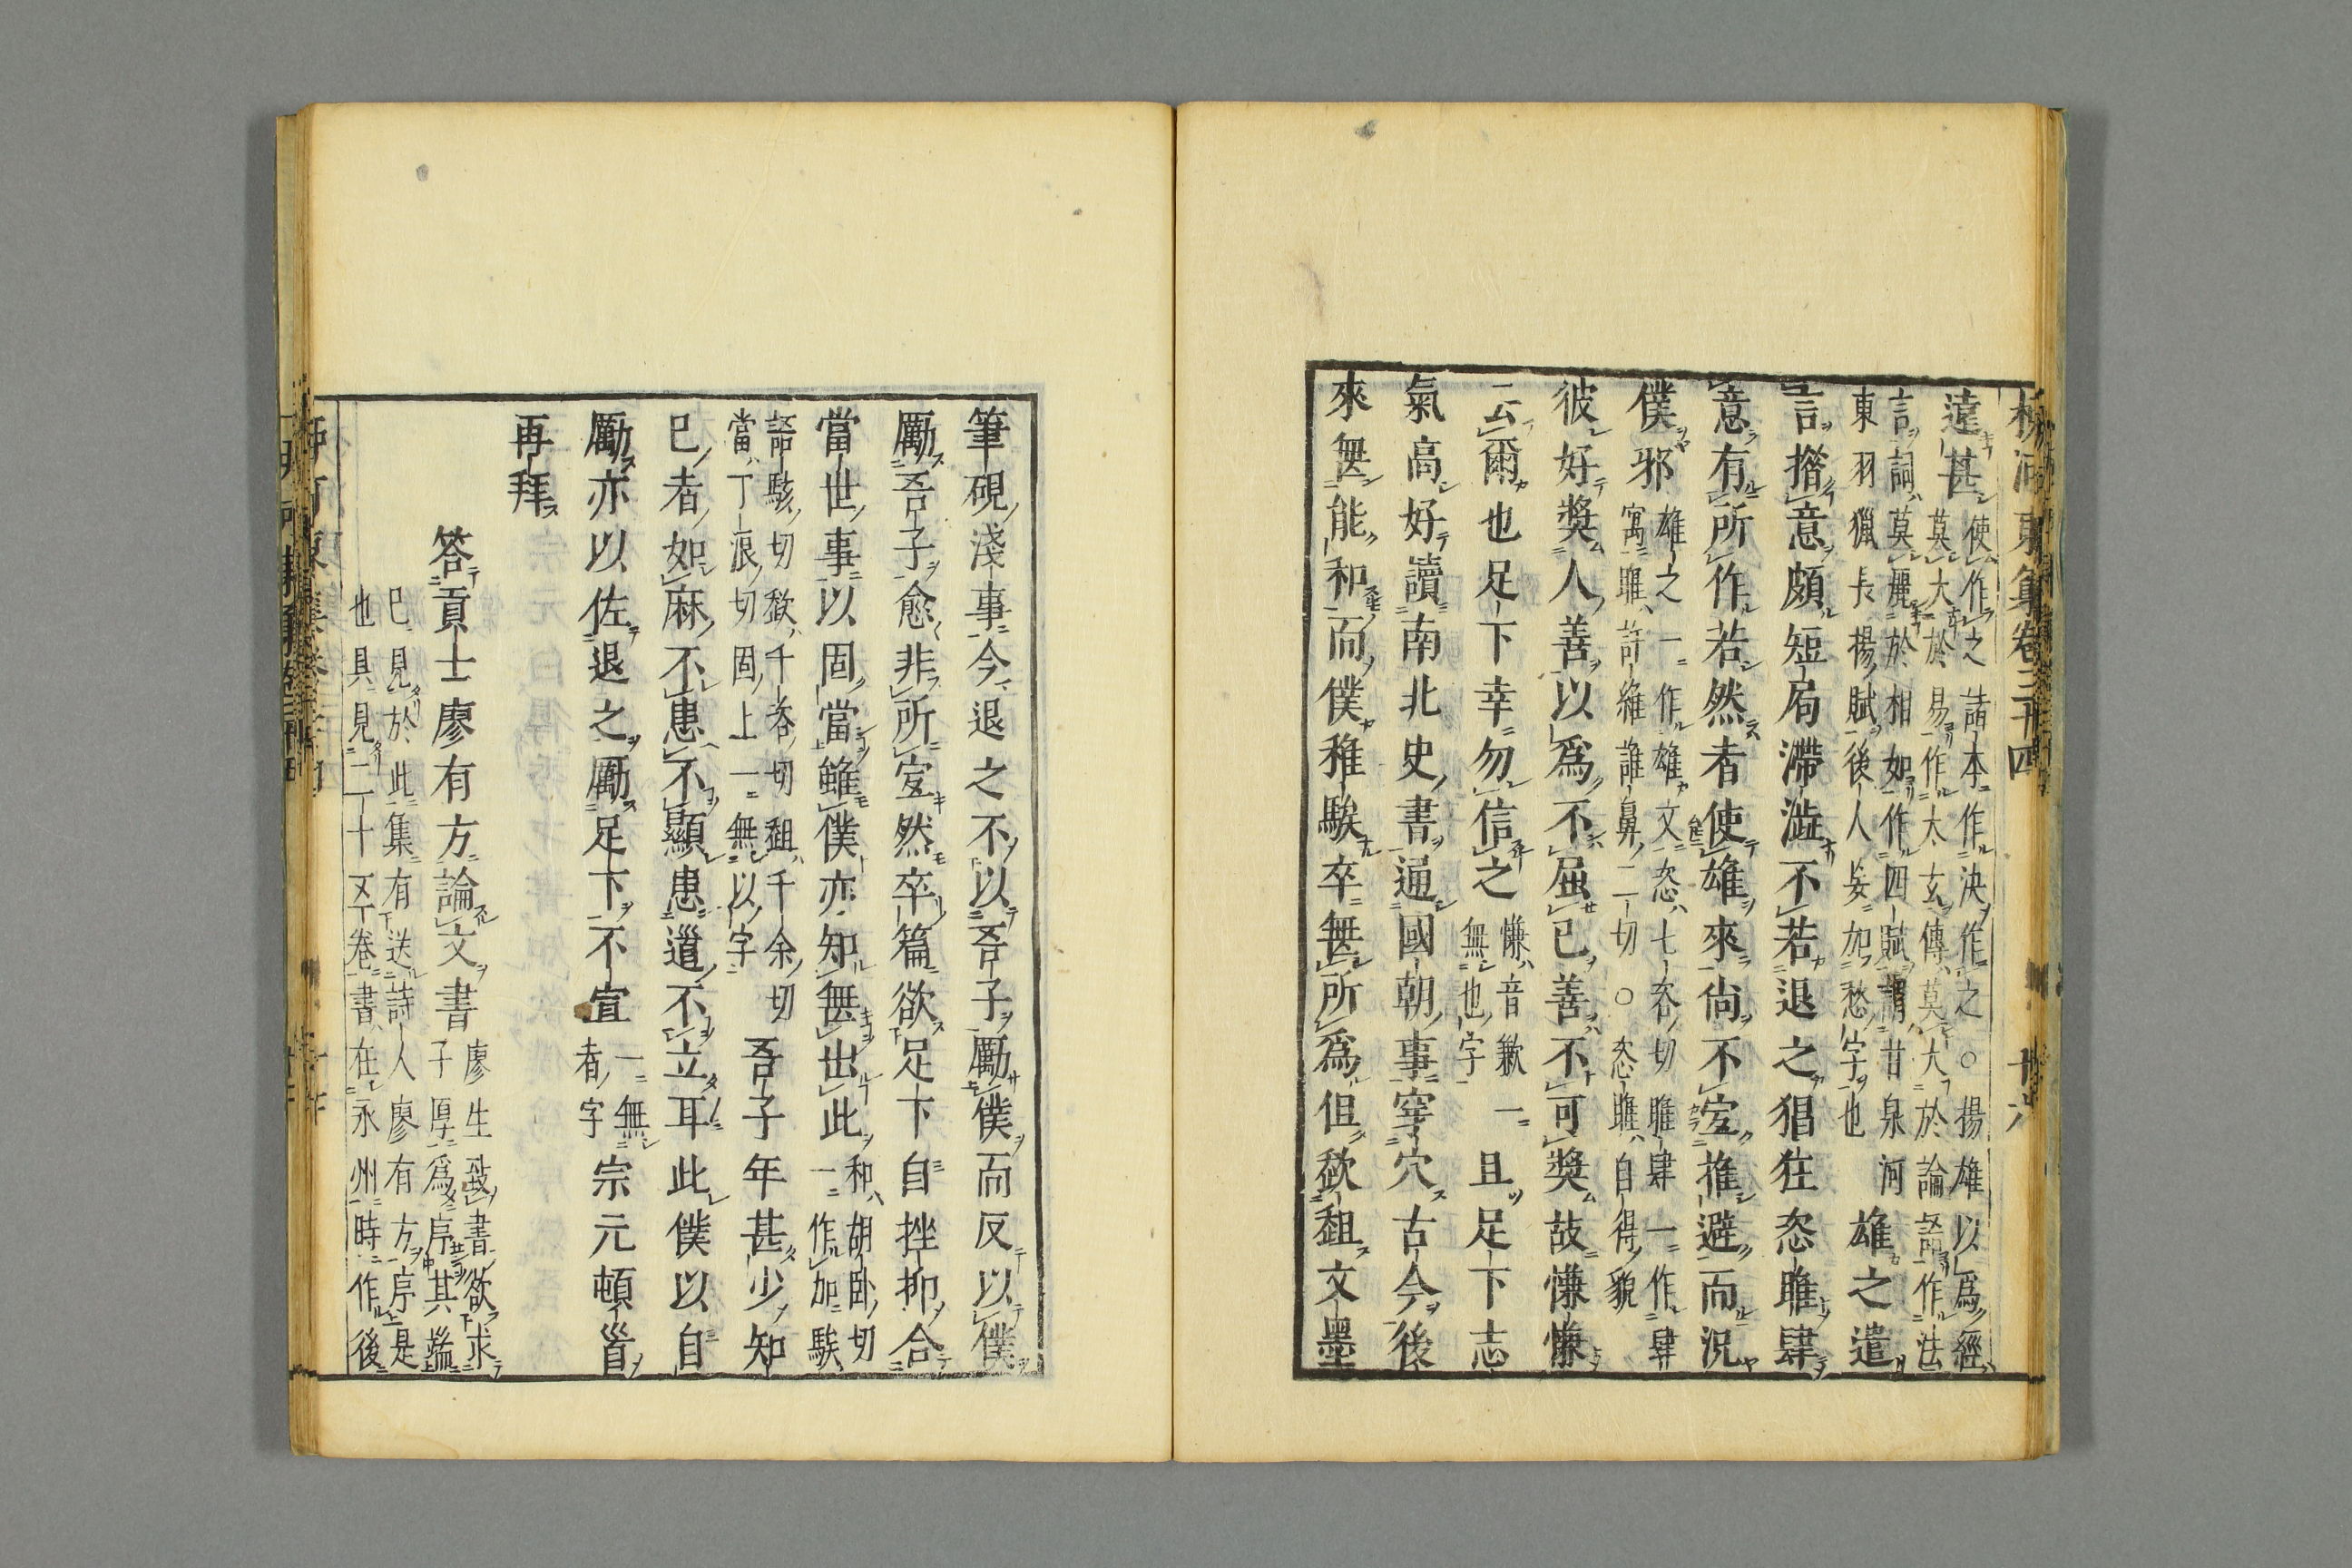 柳河東集卷三十四 十六
遠甚使作之諸本作決作之○揚雄以爲經
莫大於易作太玄傳莫大於論語作法
言詞莫麗於相如作四賦謂甘泉河
東羽獵長揚賦後人妄加愁字也雄之遣
言措意頗短局滯澁不若退之猖狂恣睢肆
意有所作若然者使雄來尚不宐推避而況
僕邪雄之一作雄文恣七咨切睢肆一作肆
寫睢許維誰鼻二切○恣睢自得貌
彼好奬人善以爲不屈已善不可奬故慊慊
云爾也足下幸勿信之慊音歉一
無也字且足下志
氣高好讀南北史書通國朝事穿穴古今後
來無能和而僕稚騃卒無所爲但趑趄文墨
筆硯淺事今退之不以吾子勵僕而反以僕
勵吾子愈非所宐然卒篇欲足下自挫抑合
當世事以固當雖僕亦知無出此和胡卧切
一作加騃
語駭切趑千咨切趄千余切
當丁浪切固上一無以字吾子年甚少知
已者如麻不患不顯患道不立耳此僕以自
勵亦以佐退之勵足下不宣一無
者字宗元頓首
再拜
答貢士廖有方論文書廖生致書欲求
子厚爲序其端
已見於此集有送詩人廖有方序是
也具見二十五卷書在永州時作後